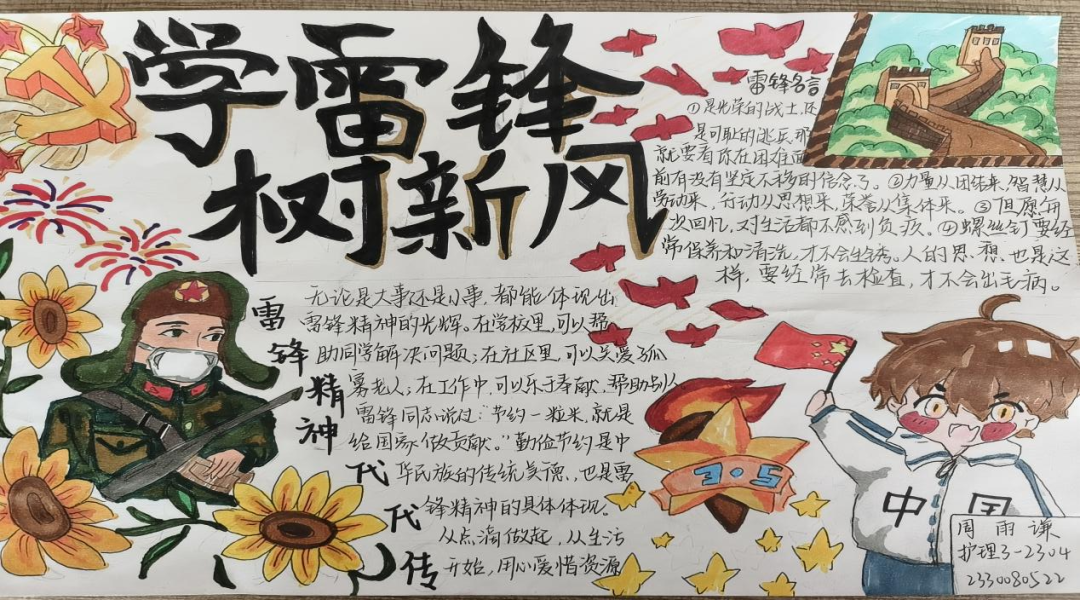 学雷锋
树新风
雷锋名言
①是光荣的战士,还
是可耻的逃兵,那
就要看你在困难面
前有没有坚定不移的信念了。②力量从团结来,智慧从
劳动来,行动从思想来,荣誉从集体来。③但愿每
次回忆,对生活都不感到负疚。④螺丝钉要经
常保养和清洗,才不会生锈。人的思想,也是这
样,要经常去检查,才不会出毛病。
雷锋精神代代传
无论是大事还是小事,都能体现出
雷锋精神的光辉。在学校里,可以帮
助同学解决问题;在社区里,可以关爱孤
寡老人;在工作中,可以乐于奉献,帮助别人
雷锋同志说过:“节约一粒米,就是
给国家做贡献。”勤俭节约是中
华民族的传统美德,也是雷
锋精神的具体体现。
从点滴做起,从生活
开始,用心爱惜资源
3·5
中国
周雨谦
护理3-2304
2330080522